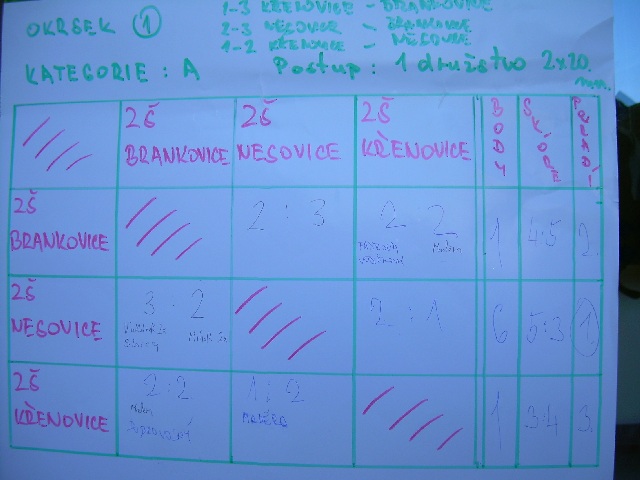 1-3 KŘENOVICE - BRANKOVICE
OKRSEK 1
2-3 NESOVICE - BRANKOVICE
1-2 KŘENOVICE - NESOVICE
KATEGORIE : A Postup : 1 družstvo 2x20 min.
ZŠ BRANKOVICE ZŠ NESOVICE ZŠ KŘENOVICE BODY SKÓRE POŘADÍ
ZŠ BRANKOVICE 2 : 3 2 2 1 4:5 2.
ZŠ NESOVICE 3 : 2 2 : 1 6 5:3 1
ZŠ KŘENOVICE 2:2 1 : 2 1 3:4 3.